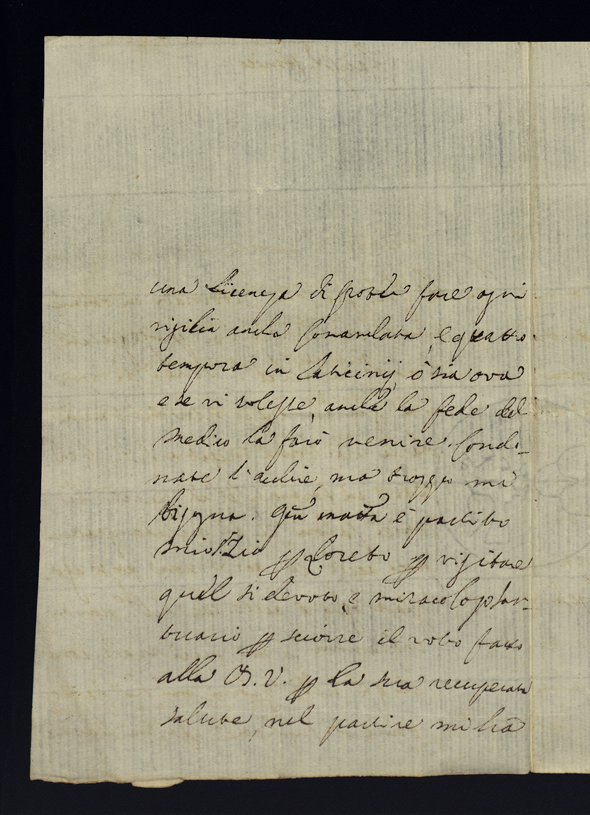 una licenza di poter fare ogni
vigilia anche comandata, e quatro
tempora in laticinij, ò sia ova
e se vi volesse, anche la fede del
medico la farò venire. Condo-
nate l'ardire, ma troppo mi
bisogna. Qui matta è partito
mio Zio p Loreto p visitare
quel sì devoto, e miracoloso san-
tuario p sciorre il voto fatto
alla B. V. p la sua recuperata
salute, nel partire mi hà